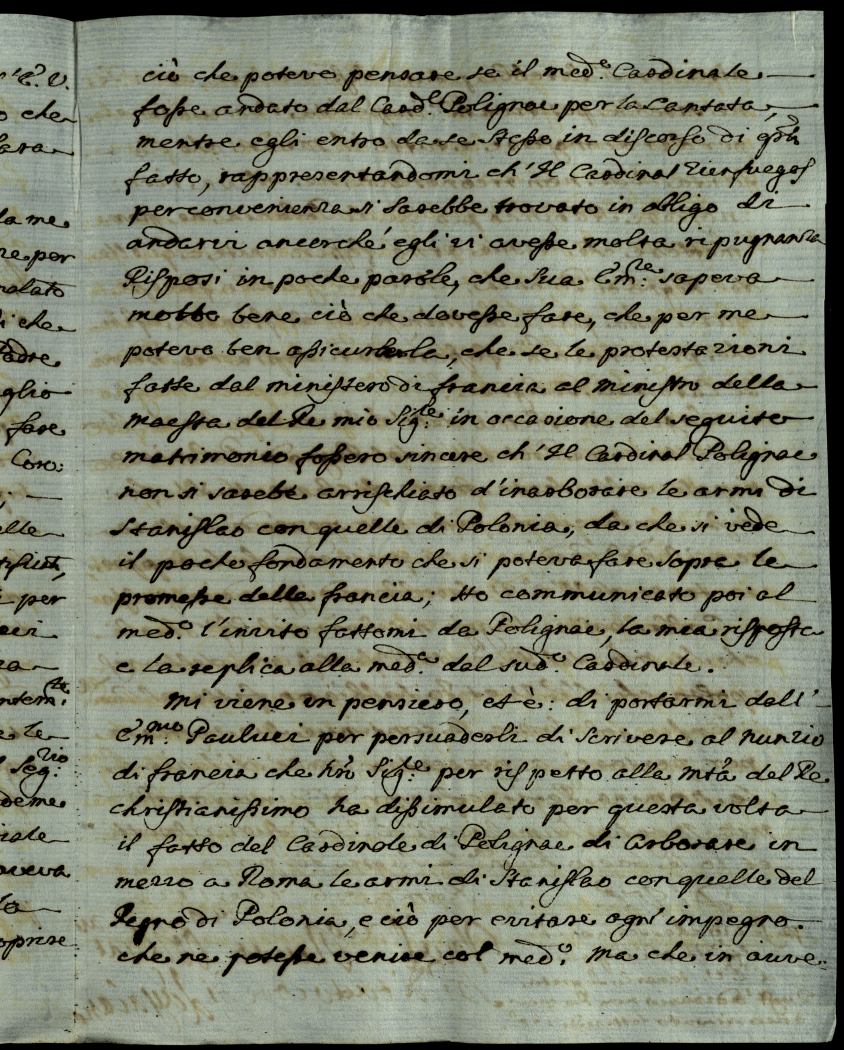 ciò che poteva pensare se il med.º Cardinale
fosse andato dal Card.l Polignac per la Cantata,
mentre egli entro da se stesso in discorso di qsto
fatto, rappresentandomi ch'Il Cardinal Zienfuegos
per convenienza si sarebbe trovato in obligo di
andarvi ancorché egli vi avesse molta ripugnanza
Risposi in poche parole, che Sua Em.ze sapeva
molto bene ciò che dovesse fare, che per me
poteva ben assicurarla, che se le protestazioni
fatte dal ministero di francia al ministro della
Maesta del Re mio Sig.re in occasione del seguito
matrimonio fossero sincere ch'Il Cardinal Polignac
non si sarebe arrischiato d'inarborare le armi di
Stanislao con quelle di Polonia, da che si vede
il poche fondamento che si poteva fare sopra le
promesse della francia; Ho communicato poi al
med.º l'invito fattomi da Polignac, la mia risposta
e la replica alla med.a del sud.º Cardinale.
Mi viene in pensiero, et è: di portarmi dall'
Em.mo Pauluci per persuaderli di scrivere al nunzio
di francia che Nrõ Sig.re per rispetto alla Mtà del Re
christianissimo ha dissimulato per questa volta
il fatto del Cardinale di Polignac di arborare in
mezzo a Roma le armi di Stanislao con quelle del
Regno di Polonia, e ciò per evitare ogni impegno
che ne potesse venire col med.º Ma che in avve-
'E. V.
o che
la me
re per
malato
i che
Padre
glio
fare
Coro:
elle
per
ra
e le
Seg.rio
deme
iale
oveva
oprire